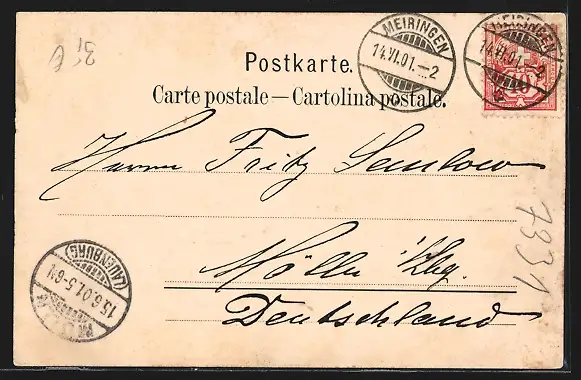 Postkarte.
Carte postale — Cartolina postale.
MEIRINGEN
14.VI.01.–2
MEIRINGEN
14.VI.01.–2
10
Herrn Fritz
Mölln
Deutschland
(LAUENBURG)
15.6.01.5-6N
7331